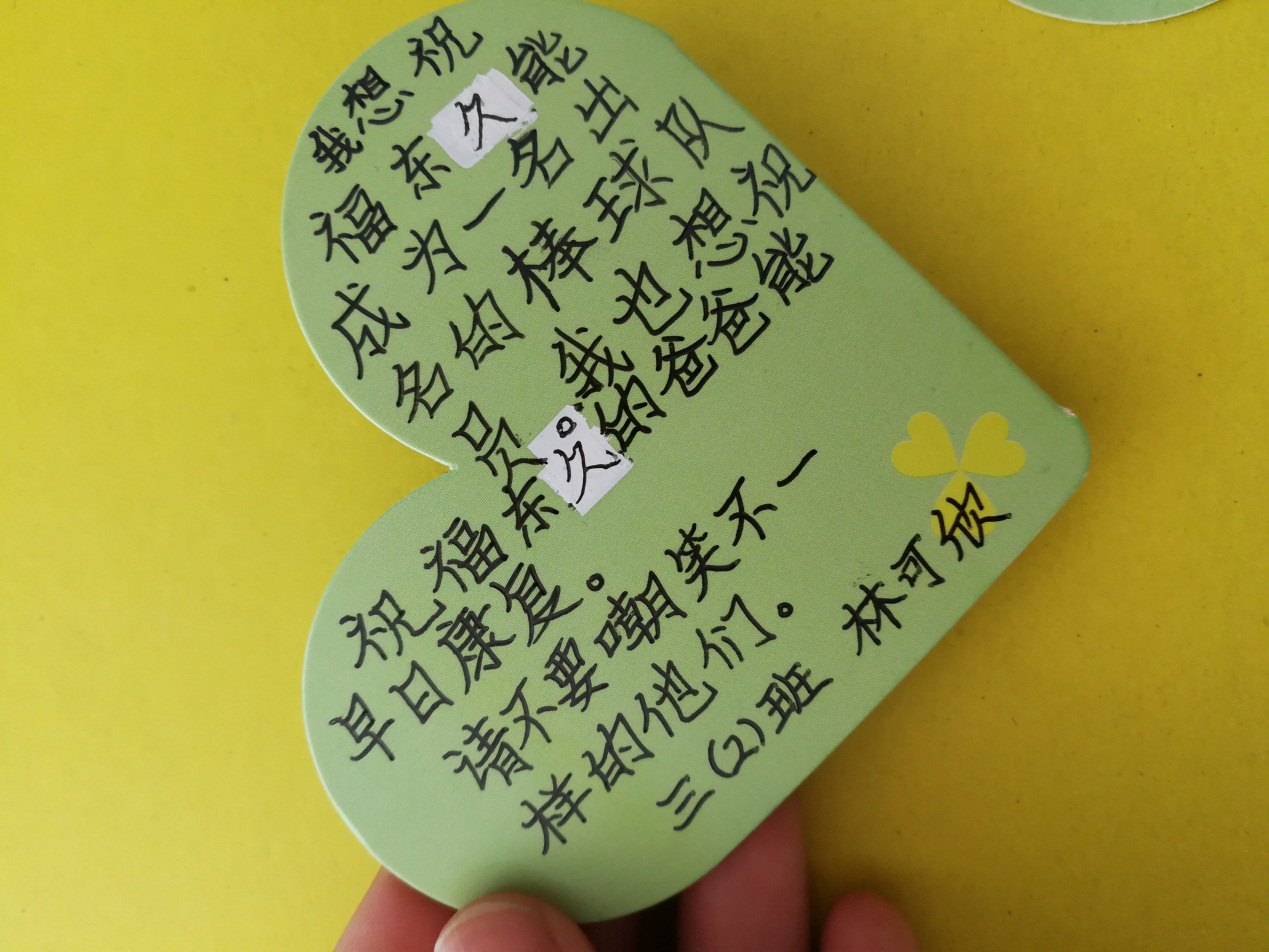 我想祝
福东久能
成为一名出
名的棒球队
员。我也想祝
祝福东久的爸爸能
早日康复。
请不要嘲笑不一
样的他们。
三(2)班 林可欣